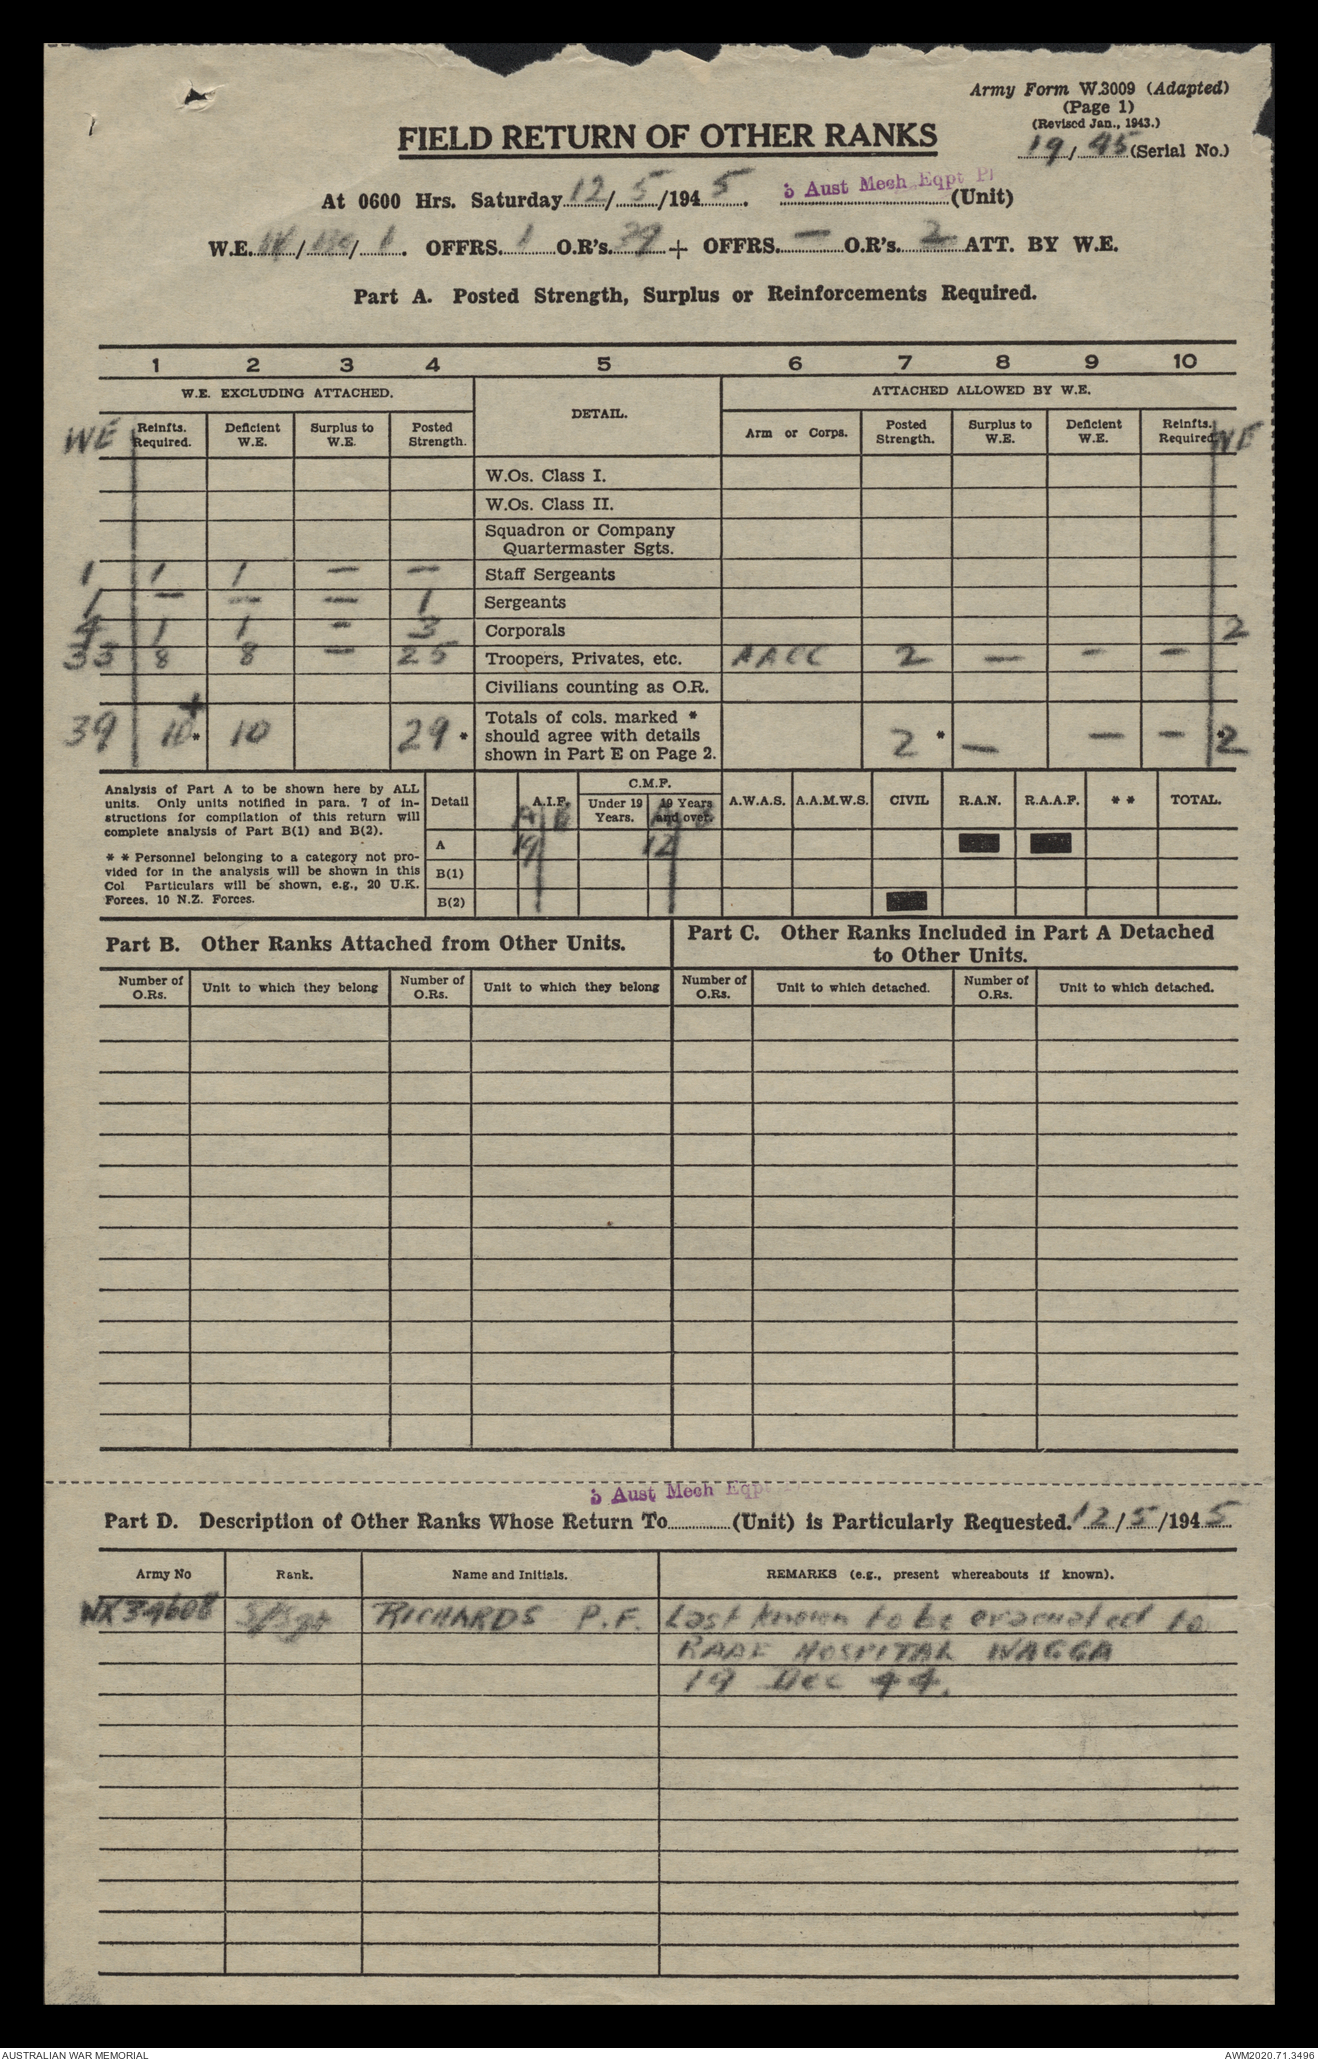 Army Form W.3009 (Adapted)
(Page 1)
(Revised Jan., 1943.)
19/45 (Serial No.)
FIELD RETURN OF OTHER RANKS
At 0600 Hrs. Saturday 12/5/1945. 5 Aust Mech Eqpt Pl (Unit)
W.E. / / 1. OFFRS. 1 O.R's. 39 + OFFRS. — O.R's. 2 ATT. BY W.E.
Part A. Posted Strength, Surplus or Reinforcements Required.
1 2 3 4 5 6 7 8 9 10
W.E. EXCLUDING ATTACHED. DETAIL. ATTACHED ALLOWED BY W.E.
WE Reinfts. Required. Deficient W.E. Surplus to W.E. Posted Strength. Arm or Corps. Posted Strength. Surplus to W.E. Deficient W.E. Reinfts. Required. WE
W.Os. Class I.
W.Os. Class II.
Squadron or Company
Quartermaster Sgts.
1 1 1 — — Staff Sergeants
1 — — — 1 Sergeants
4 1 1 - 3 Corporals 2
33 8 8 — 25 Troopers, Privates, etc. AACC 2 — - —
Civilians counting as O.R.
39 10* 10 29* Totals of cols. marked * should agree with details shown in Part E on Page 2. 2* — — — *2
Analysis of Part A to be shown here by ALL
units. Only units notified in para. 7 of in-
structions for compilation of this return will
complete analysis of Part B(1) and B(2).
* * Personnel belonging to a category not pro-
vided for in the analysis will be shown in this
Col Particulars will be shown, e.g., 20 U.K.
Forces, 10 N.Z. Forces.
Detail A.I.F. C.M.F. Under 19 Years. 19 Years and over. A.W.A.S. A.A.M.W.S. CIVIL R.A.N. R.A.A.F. * * TOTAL.
A B A B
A 19 12
B(1)
B(2)
Part B. Other Ranks Attached from Other Units.
Part C. Other Ranks Included in Part A Detached
to Other Units.
Number of O.Rs. Unit to which they belong Number of O.Rs. Unit to which they belong Number of O.Rs. Unit to which detached. Number of O.Rs. Unit to which detached.
5 Aust Mech Eqpt
Part D. Description of Other Ranks Whose Return To (Unit) is Particularly Requested. 12/5/1945
Army No Rank. Name and Initials. REMARKS (e.g., present whereabouts if known).
NX34608 S/Sgt RICHARDS P.F. Last known to be evacuated to
RAAF HOSPITAL WAGGA
19 Dec 44.
AUSTRALIAN WAR MEMORIAL
AWM2020.71.3496